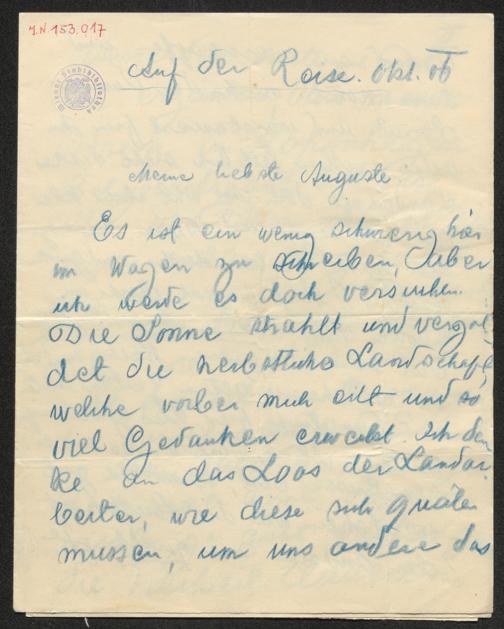 J.N. 153.017
Auf der Reise. Okt. 06
Wiener Stadtbibliothek
Meine liebste Auguste.
Es ist ein wenig schwierig hier
im Wagen zu schreiben, aber
ich werde es doch versuchen.
Die Sonne strahlt und vergol-
det die herbstliche Landschaft,
welche vorbei mich eilt und so
viel Gedanken erweckt. Ich den
ke an das Loos der Landar
beiter, wie diese sich quälen
müssen, um uns andere das